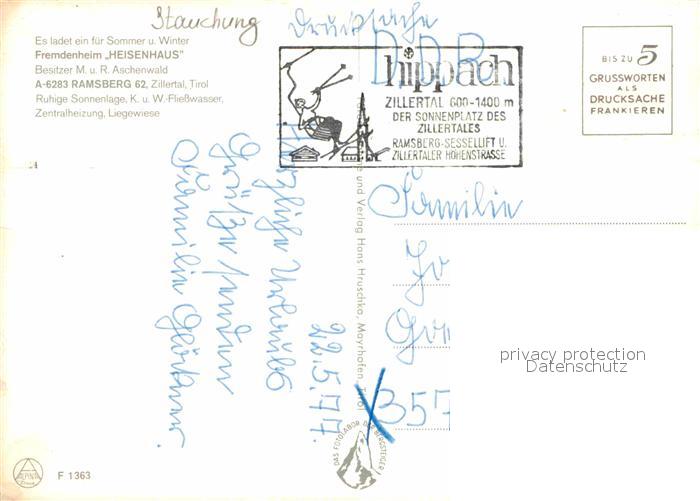 Stauchung
Drucksache
D.D.R.
Es ladet ein für Sommer u. Winter
Fremdenheim „HEISENHAUS"
Besitzer M. u. R. Aschenwald
A-6283 RAMSBERG 62, Zillertal, Tirol
Ruhige Sonnenlage, K. u. W.-Fließwasser,
Zentralheizung, Liegewiese
hippach
ZILLERTAL 600-1400 m
DER SONNENPLATZ DES
ZILLERTALES
RAMSBERG-SESSELLIFT U.
ZILLERTALER HÖHENSTRASSE
BIS ZU 5
GRUSSWORTEN
ALS
DRUCKSACHE
FRANKIEREN
22.5.77.
Herzliche Urlaubs
Grüße senden
Familie
und Verlag Hans Hruschka, Mayrhofen, Tirol
Familie
357
privacy protection
Datenschutz
DAS FOTOLABOR DER BERGSTEIGER
ALPINA
F 1363